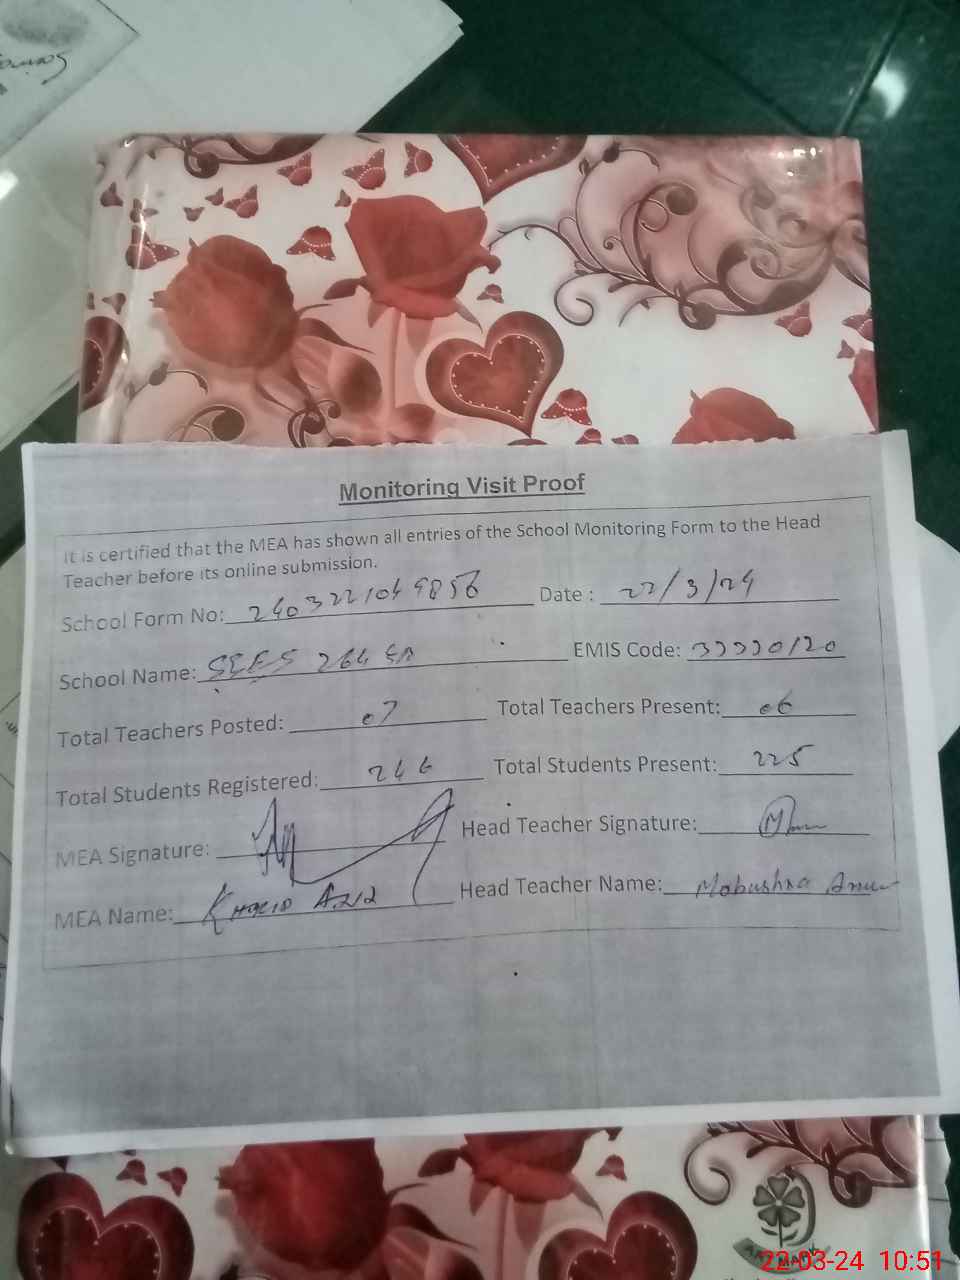 Monitoring Visit Proof
It is certified that the MEA has shown all entries of the School Monitoring Form to the Head
Teacher before its online submission.
School Form No: 2403221049856 Date : 22/3/24
School Name: 264 EMIS Code:
Total Teachers Posted: 07 Total Teachers Present: 06
Total Students Registered: 246 Total Students Present: 225
MEA Signature: Head Teacher Signature:
MEA Name: Khalid Aziz Head Teacher Name: Mobushra
22-03-24 10:51